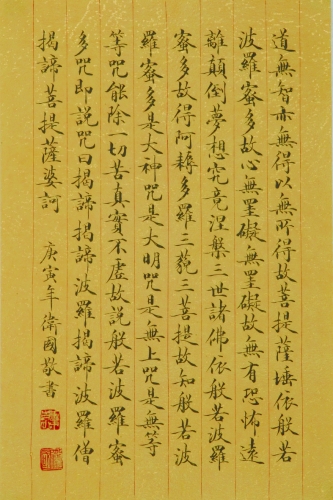 道無智亦無得以無所得故菩提薩埵依般若
波羅蜜多故心無罣礙無罣礙故無有恐怖遠
離顛倒夢想究竟涅槃三世諸佛依般若波羅
蜜多故得阿耨多羅三藐三菩提故知般若波
羅蜜多是大神咒是大明咒是無上咒是無等
等咒能除一切苦真實不虛故說般若波羅蜜
多咒即說咒曰揭諦揭諦波羅揭諦波羅僧
揭諦菩提薩婆訶
庚寅年衛國敬書